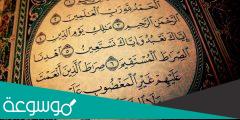 الْحَمْدُ لِلَّهِ رَبِّ الْعَالَمِينَ
الرَّحْمَٰنِ الرَّحِيمِ مَالِكِ يَوْمِ الدِّينِ
إِيَّاكَ نَعْبُدُ وَإِيَّاكَ نَسْتَعِينُ
الصِّرَاطَ الْمُسْتَقِيمَ صِرَاطَ الَّذِينَ أَنْعَمْتَ
عَلَيْهِمْ غَيْرِ الْمَغْضُوبِ عَلَيْهِمْ
موسوعة